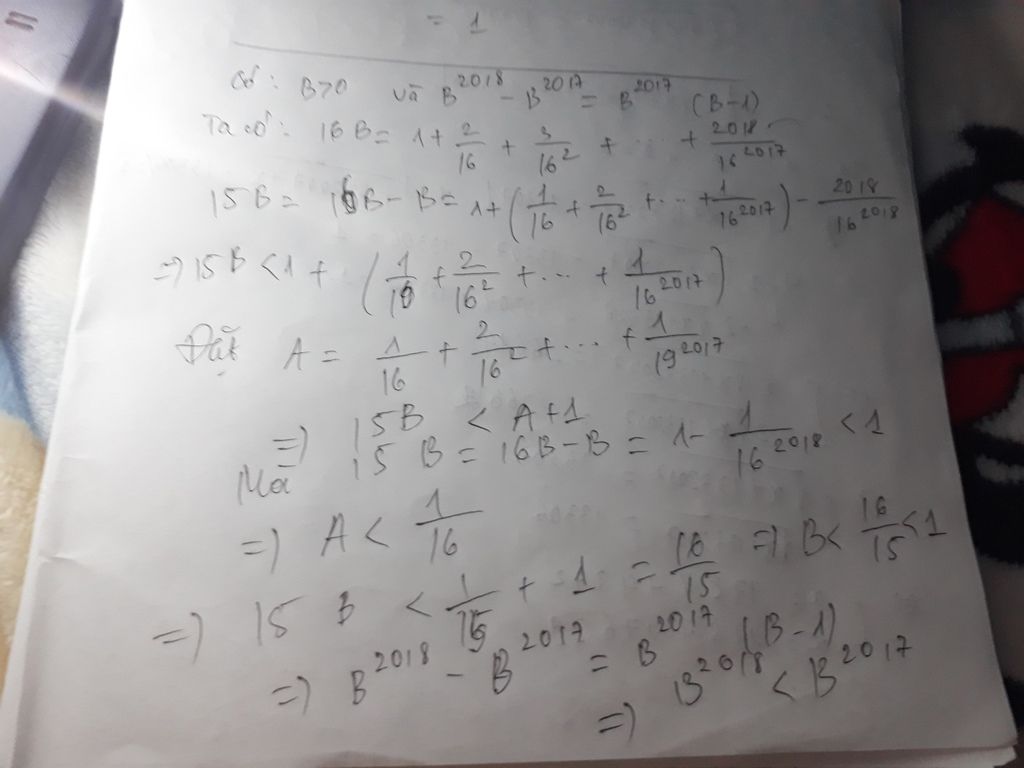 = 1
Có: B>0 và B^2018 - B^2017 = B^2017 (B-1)
Ta có: 16B = 1 + 2/16 + 3/16^2 + ... + 2018/16^2017
15B = 16B - B = 1 + (1/16 + 2/16^2 + ... + 1/16^2017) - 2018/16^2018
=> 15B < 1 + (1/16 + 2/16^2 + ... + 1/16^2017)
Đặt A = 1/16 + 2/16^2 + ... + 1/19^2017
=> 15B < A+1
Mà 15 B = 16B - B = 1 - 1/16^2018 < 1
=> A < 1/16
=> 15 B < 1/15 + 1 = 16/15 => B < 16/15 < 1
=> B^2018 - B^2017 = B^2017 (B-1)
=> B^2018 < B^2017